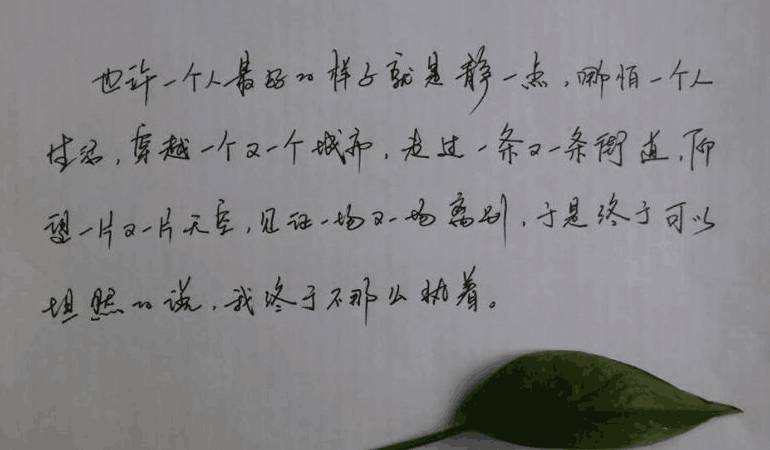 也许一个人最好的样子就是静一点，哪怕一个人
生活，穿越一个又一个城市，走过一条又一条街道，仰
望一片又一片天空，见证一场又一场离别，于是终于可以
坦然的说，我终于不那么执着。